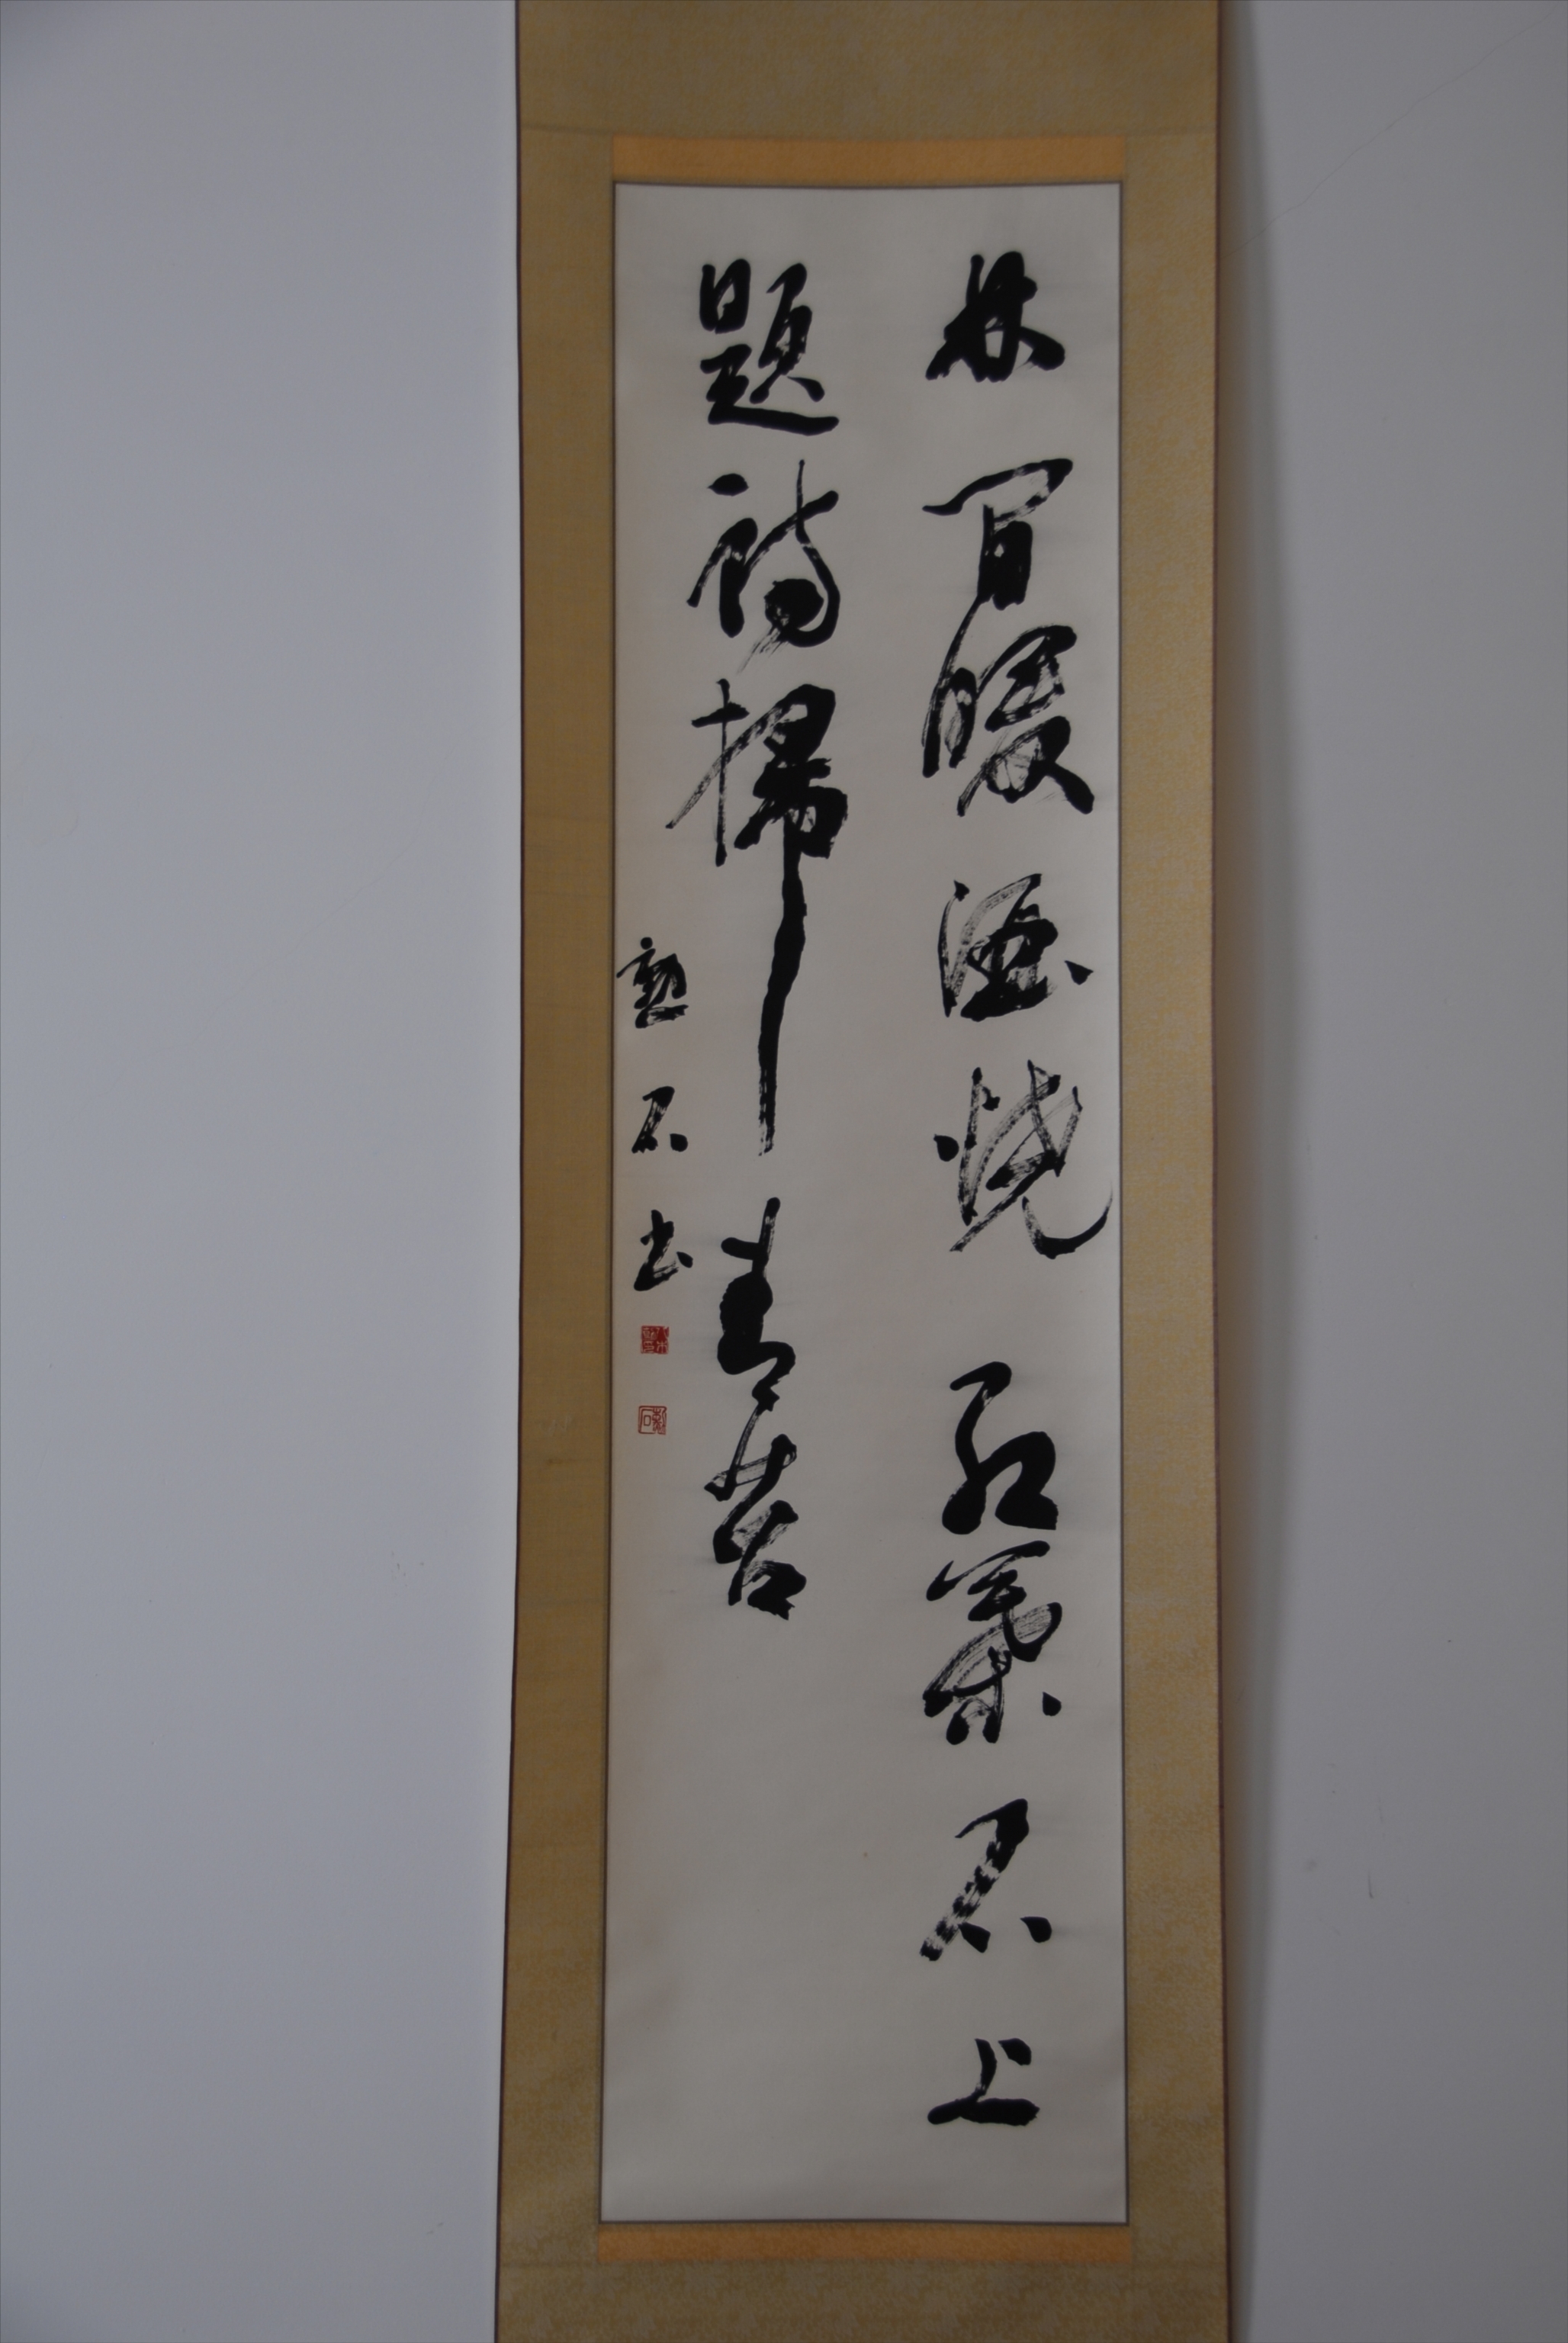 林間暖酒燒紅葉石上
題詩掃青苔
石書